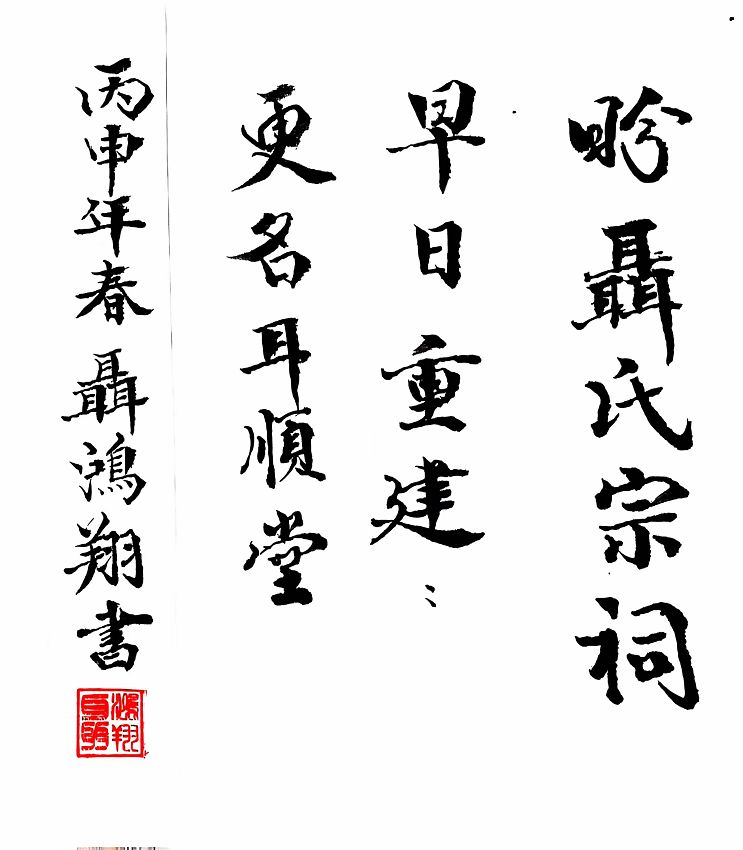 盼聶氏宗祠
早日重建〻
更名耳順堂
丙申年春聶鴻翔書
鴻翔